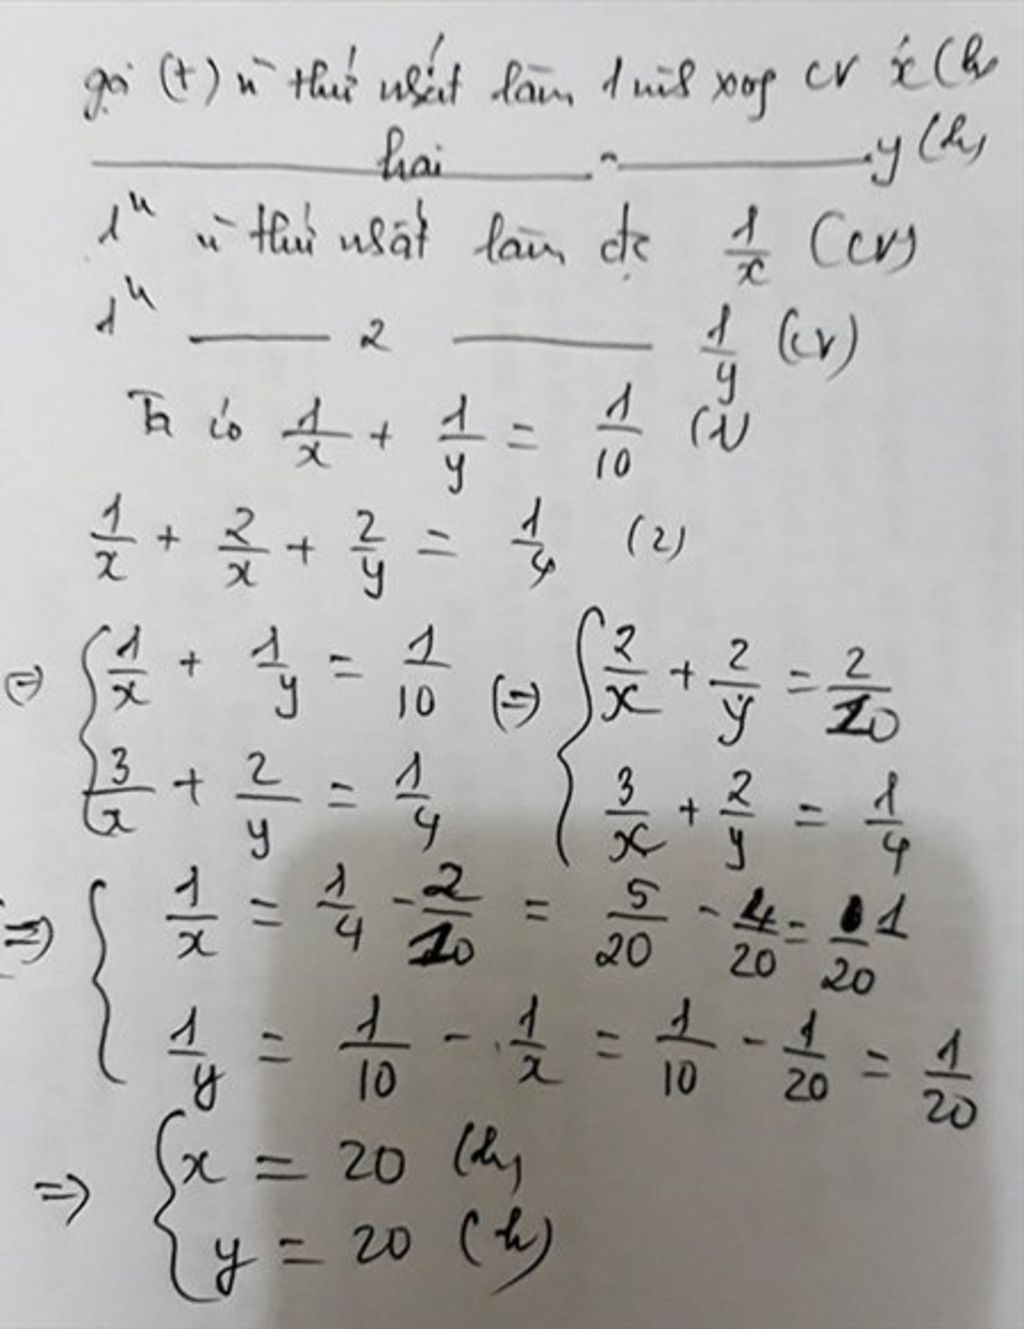 gọi (t) ng` thứ nhất làm 1 mình xong cv là x (h)
hai y (h)
1h ng` thứ nhất làm đc 1/x (cv)
1h 2 1/y (cv)
Ta có 1/x + 1/y = 1/10 (1)
1/x + 2/x + 2/y = 1/4 (2)
(=) { 1/x + 1/y = 1/10 (=) { 2/x + 2/y = 2/10
3/x + 2/y = 1/4 3/x + 2/y = 1/4
(=) { 1/x = 1/4 - 2/10 = 5/20 - 4/20 = 1/20
1/y = 1/10 - 1/x = 1/10 - 1/20 = 1/20
=> { x = 20 (h)
y = 20 (h)